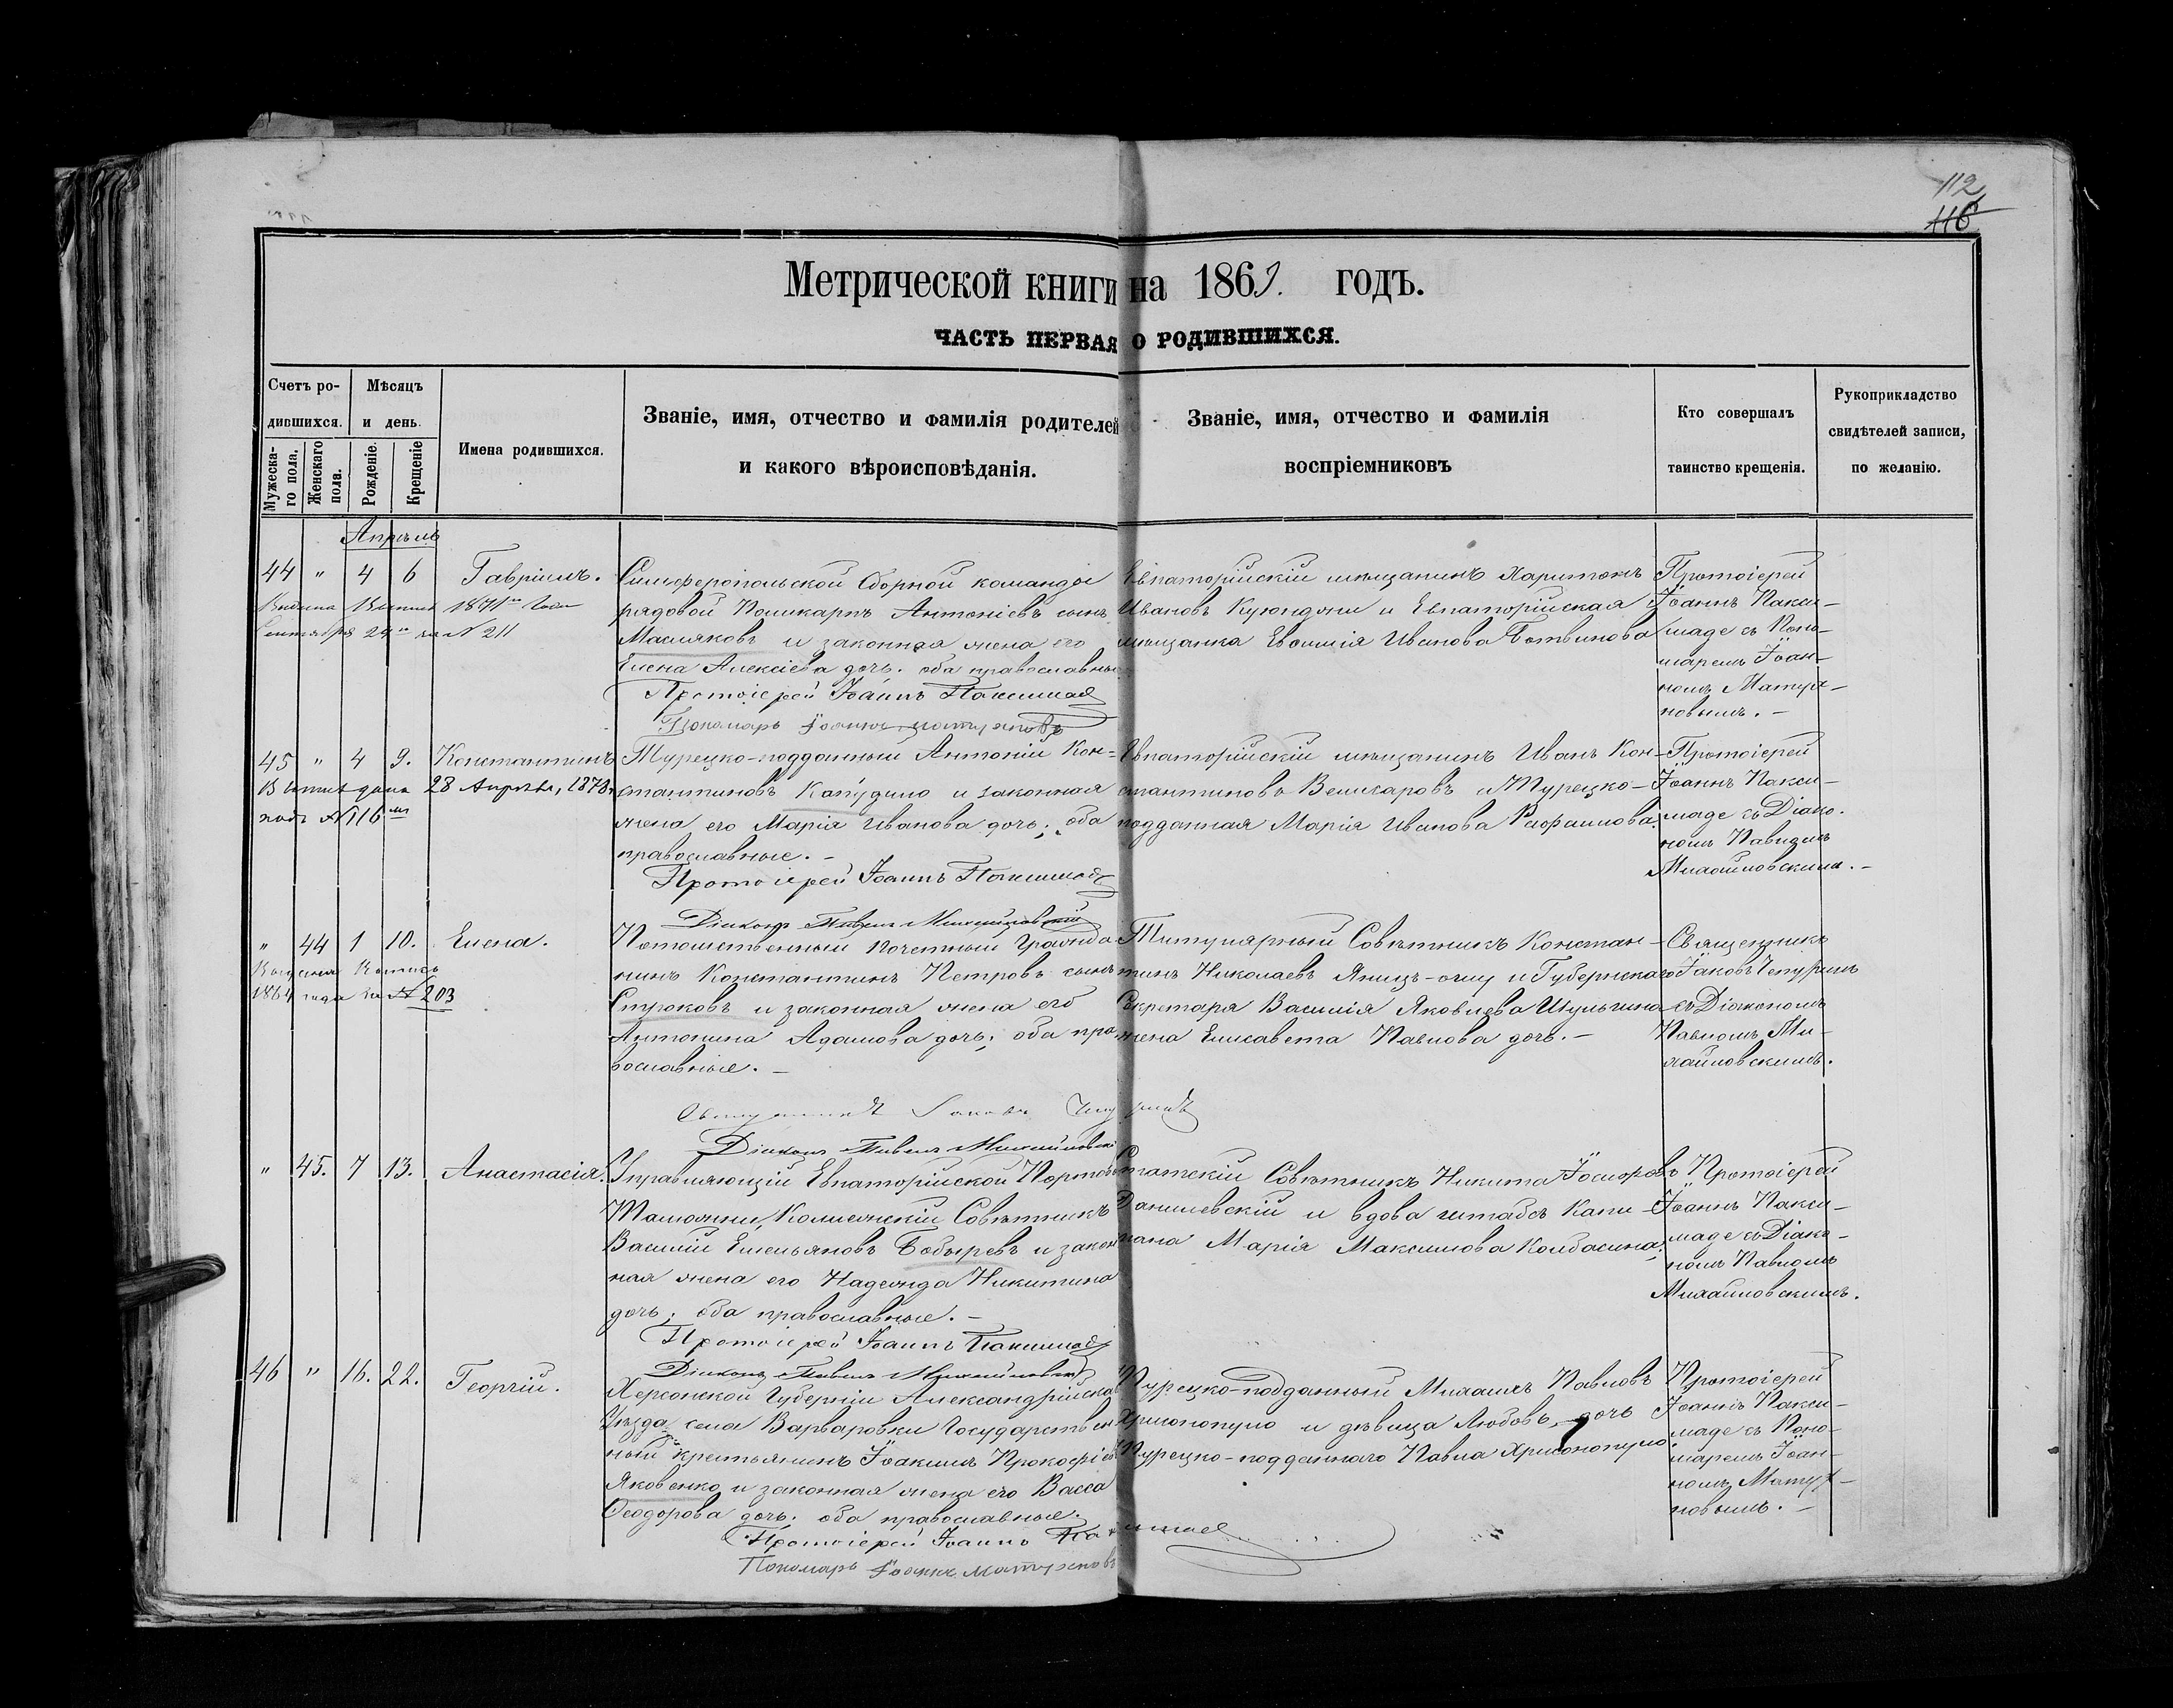 112
116
Метрической книги на 1861. годъ.
ЧАСТЬ ПЕРВАЯ О РОДИВШИХСЯ.
Счетъ ро-
дившихся.
Мужеска-
го пола.
Женскаго
пола.
Мѣсяцъ
и день.
Рожденіе.
Крещеніе
Имена родившихся.
Званіе, имя, отчество и фамилія родителей
и какого вѣроисповѣданія.
Званіе, имя, отчество и фамилія
воспріемниковъ
Кто совершалъ
таинство крещенія.
Рукоприкладство
свидѣтелей записи,
по желанію.
Апрѣль
44 " 4 6 Гавріилъ.
1871го года
Сентября 29го за № 211
Симферопольской Сборной команды
рядовой Поликарпъ Антоніевъ сынъ
Масляковъ и законная жена его
Елена Алексіева дочь. оба православные
Протоіерей Іоаннъ Паксимаде
Пономарь Іоаннъ Матуяновъ
Евпаторійскій мѣщанинъ Харитонъ
Ивановъ Куюнджи и Евпаторійская
мѣщанка Евфимія Иванова Ботвинова
Протоіерей
Іоаннъ Пакси-
маде съ Поно-
маремъ Іоан-
номъ Матуя-
новымъ. -
45 " 4 9. Константинъ
28 Апрѣля, 1878
подъ № 116мъ
Турецко-подданный Антоній Кон-
стантиновъ Капудило и законная
жена его Марія Иванова дочь; оба
православные. -
Протоіерей Іоаннъ Паксимаде
Діаконъ Павелъ Михайловскій
Евпаторійскій мѣщанинъ Иванъ Кон-
стантиновъ Велисаровъ и Турецко-
подданная Марія Иванова
Протоіерей
Іоаннъ Пакси-
маде съ Діако-
номъ Павломъ
Михайловскимъ. -
" 44 1 10. Елена.
1864 года за № 203
Потомственный почетный Гражда-
нинъ Константинъ Петровъ сынъ
Струковъ и законная жена его
Антонина Адамова дочь; оба пра-
вославные. -
Священникъ Іаковъ Чепуринъ
Діаконъ Павелъ Михайловскій
Титулярный Совѣтникъ Констан-
тинъ Николаевъ Яницъ-оглу и Губернскаго
Секретаря Василія Яковлева Шульгина
жена Елисавета Павлова дочь. -
Священникъ
Іаковъ Чепуринъ
съ Діакономъ
Павломъ Ми-
хайловскимъ.
" 45. 7 13. Анастасія.
Управляющій Евпаторійской Портовой
Таможни, Коллежскій Совѣтникъ
Василій Емельяновъ Бобыревъ и закон-
ная жена его Надежда Никитина
дочь; оба православные. -
Протоіерей Іоаннъ Паксимаде
Діаконъ Павелъ Михайловскій
Статскій Совѣтникъ Никита Іосифовъ
Данилевскій и вдова штабсъ Капи-
тана Марія Максимова Колбасина;
Протоіерей
Іоаннъ Пакси-
маде съ Діако-
номъ Павломъ
Михайловскимъ.
46 " 16. 22. Георгій.
Херсонской Губерніи Александрійскаго
Уѣзда села Варваровки Государствен-
ный крестьянинъ Іоакимъ Прокофіевъ
Яковенко и законная жена его Васса
Ѳеодорова дочь; оба православные.
Протоіерей Іоаннъ Паксимаде
Пономарь Іоаннъ Матуяновъ
Турецко-подданный Михаилъ Павловъ
Хрисопопуло и дѣвица Любовь, дочь
Турецко-подданнаго Павла Хрисопопуло.
Протоіерей
Іоаннъ Пакси-
маде съ Поно-
маремъ Іоан-
номъ Матуя-
новымъ. -